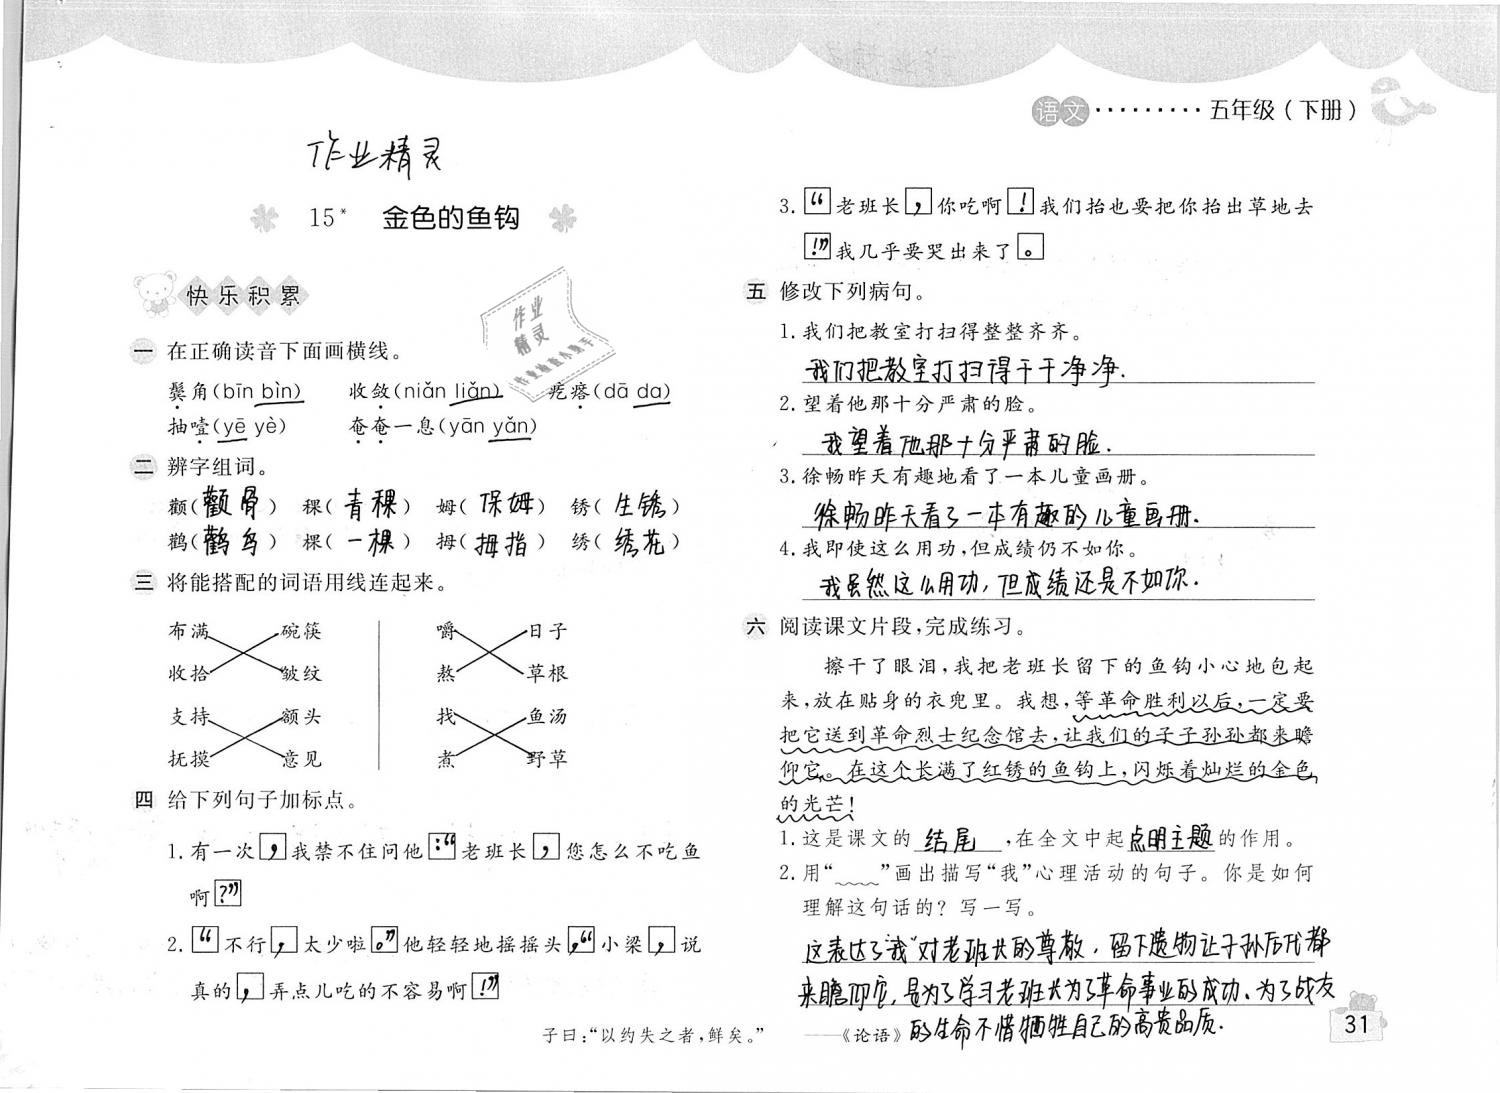 语文·········五年级(下册)
作业精灵
15* 金色的鱼钩
快乐积累
作业
精灵
一 在正确读音下面画横线。
鬓角(bīn bìn) 收敛(niǎn liǎn) 疙瘩(dā da)
抽噎(yē yè) 奄奄一息(yān yǎn)
二 辨字组词。
颧(颧骨) 稞(青稞) 姆(保姆) 锈(生锈)
鹳(鹳鸟) 棵(一棵) 拇(拇指) 绣(绣花)
三 将能搭配的词语用线连起来。
布满 碗筷 嚼 日子
收拾 皱纹 熬 草根
支持 额头 找 鱼汤
抚摸 意见 煮 野草
四 给下列句子加标点。
1.有一次,我禁不住问他:“老班长,您怎么不吃鱼
啊?”
2.“不行,太少啦。”他轻轻地摇摇头,“小梁,说
真的,弄点儿吃的不容易啊!”
3.“老班长,你吃啊!我们抬也要把你抬出草地去
!”我几乎要哭出来了。
五 修改下列病句。
1.我们把教室打扫得整整齐齐。
我们把教室打扫得干干净净.
2.望着他那十分严肃的脸。
我望着他那十分严肃的脸.
3.徐畅昨天有趣地看了一本儿童画册。
徐畅昨天看了一本有趣的儿童画册.
4.我即使这么用功,但成绩仍不如你。
我虽然这么用功,但成绩还是不如你.
六 阅读课文片段,完成练习。
擦干了眼泪,我把老班长留下的鱼钩小心地包起
来,放在贴身的衣兜里。我想,等革命胜利以后,一定要
把它送到革命烈士纪念馆去,让我们的子子孙孙都来瞻
仰它。在这个长满了红锈的鱼钩上,闪烁着灿烂的金色
的光芒!
1.这是课文的 结尾 ,在全文中起点明主题的作用。
2.用“ ”画出描写“我”心理活动的句子。你是如何
理解这句话的?写一写。
这表达了“我”对老班长的尊敬,留下遗物让子孙后代都
来瞻仰它,是为了学习老班长为了革命事业的成功、为了战友
的生命不惜牺牲自己的高贵品质.
子曰:“以约失之者,鲜矣。” ——《论语》
31